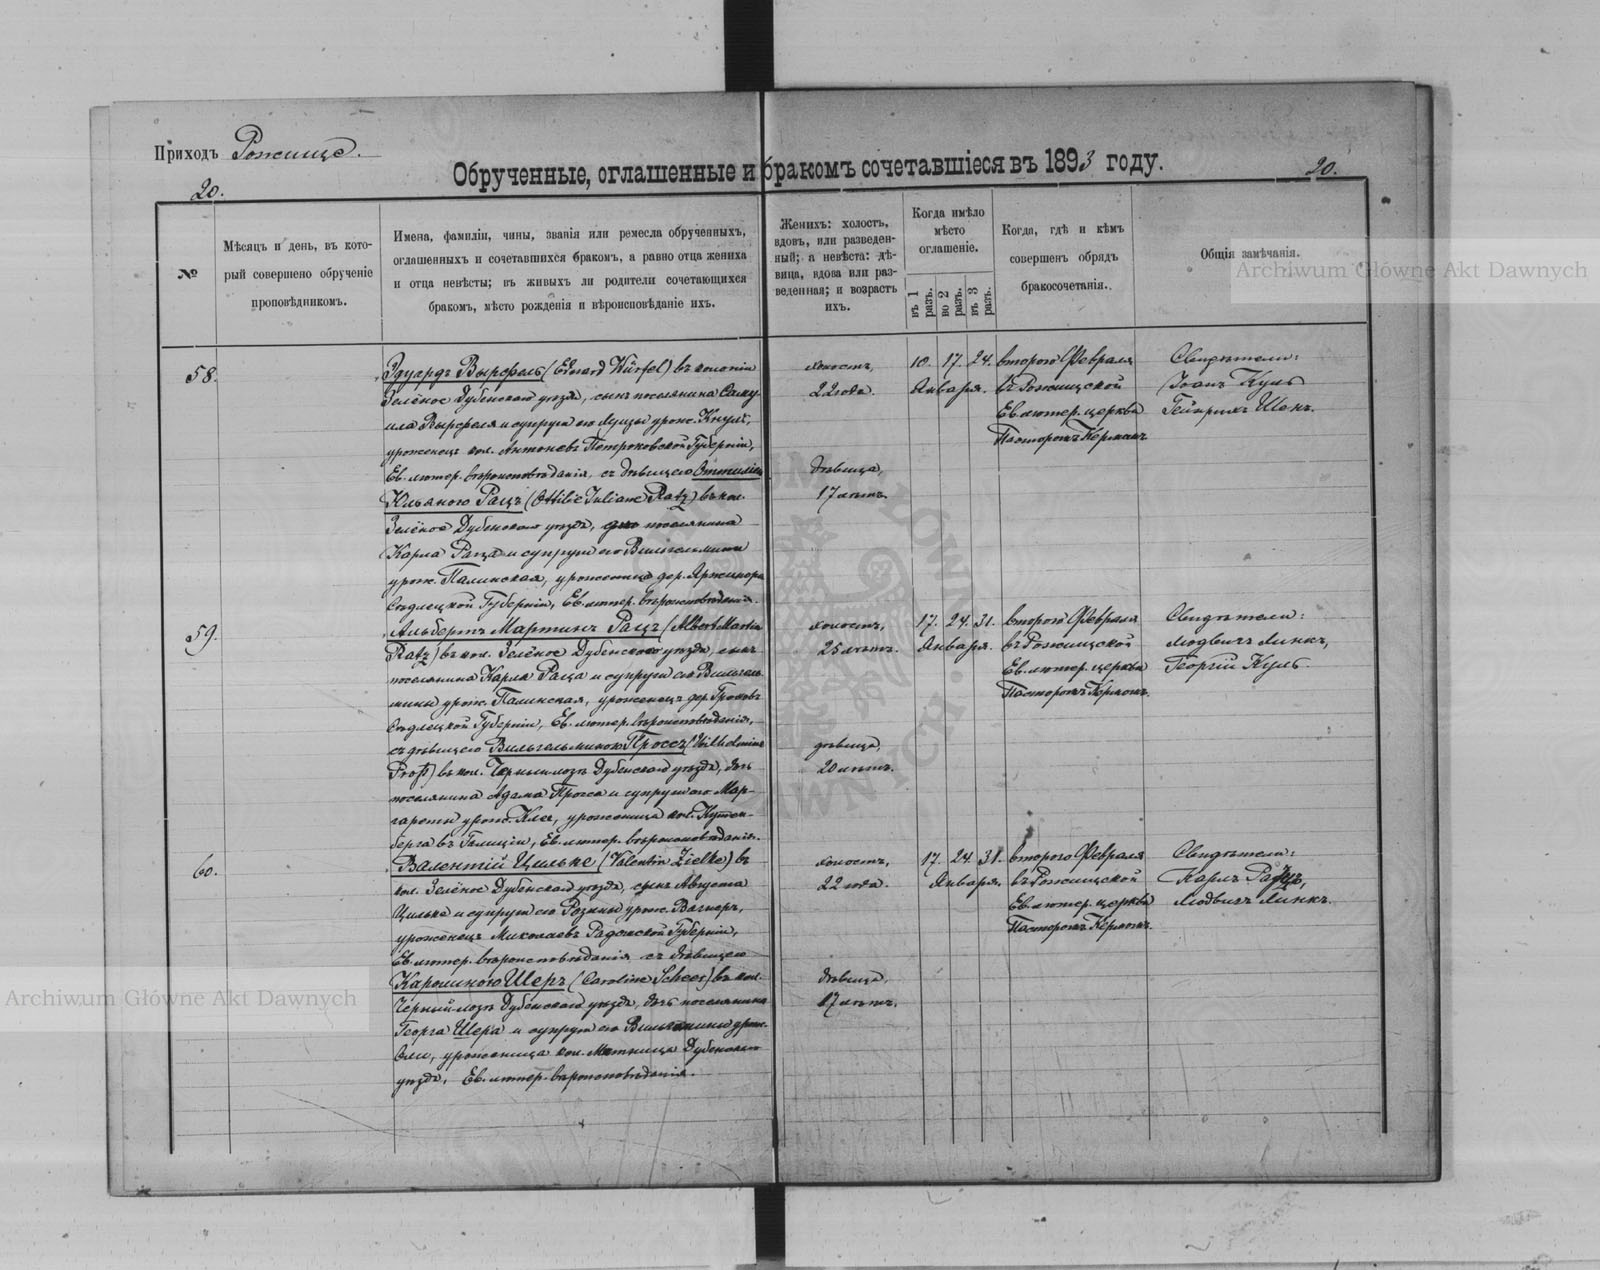 Приходъ Рожище.
Обрученные, оглашенные и бракомъ сочетавшіеся въ 1893 году.
20.
20.
№
Мѣсяцъ и день, въ кото-
рый совершено обрученіе
проповѣдникомъ.
Имена, фамиліи, чины, званія или ремесла обрученныхъ,
оглашенныхъ и сочетавшихся бракомъ, а равно отца жениха
и отца невѣсты; въ живыхъ ли родители сочетающихся
бракомъ, мѣсто рожденія и вѣроисповѣданіе ихъ.
Женихъ: холостъ,
вдовъ, или разведен-
ный; а невѣста: дѣ-
вица, вдова или раз-
веденная; и возрастъ
ихъ.
Когда имѣло
мѣсто
оглашеніе.
въ 1 разъ.
во 2 разъ.
въ 3 разъ.
Когда, гдѣ и кѣмъ
совершенъ обрядъ
бракосочетанія.
Общія замѣчанія.
58.
Эдуардъ Вырфель (Eduard Würfel) въ колоніи
Зелёное Дубенскаго уѣзда, сынъ поселянина Саму-
ила Вырфеля и супруги его Луизы урож.
уроженецъ кол. Антоневъ Петроковской Губерніи,
Ев. лютер. вѣроисповѣданія, съ дѣвицею Оттиліею
Юльяною Рацъ (Ottilie Juliane Ratz) въ кол.
Зелёное Дубенскаго уѣзда, поселянина
Карла Раца и супруги его Вильгельмины
урож. Палинская, уроженица дер.
Сѣдлецкой Губерніи, Ев. лютер. вѣроисповѣданія.
холостъ,
22 года.
дѣвица,
17 лѣтъ.
10. 17. 24.
Января.
второго Февраля
въ Рожищской
Ев. лютер. церкви
Пасторомъ Керманъ
Свидѣтели:
Іоанъ Куль
Гейнрихъ Шенъ.
59.
Альбертъ Мартинъ Рацъ (Albert Martin
Ratz) въ кол. Зелёное Дубенскаго уѣзда, сынъ
поселянина Карла Раца и супруги его Вильгель-
мины урож. Палинская, уроженецъ дер.
Сѣдлецкой Губерніи, Ев. лютер. вѣроисповѣданія,
съ дѣвицею Вильгельминою Проссъ (Wilhelmine
Proß) въ кол. Чернылозъ Дубенскаго уѣзда, дочь
поселянина Адама Просса и супруги его Мар-
гареты урож. Клеа, уроженица кол. Кутен-
берга въ Галиціи, Ев. лютер. вѣроисповѣданія.
холостъ,
25 лѣтъ.
дѣвица,
20 лѣтъ.
17. 24. 31.
Января.
второго Февраля
въ Рожищской
Ев. лютер. церкви
Пасторомъ Керманъ.
Свидѣтели:
Людвигъ Линкъ,
Георгій Куль
60.
Валентій Цильке (Valentin Zielke) въ
кол. Зелёное Дубенскаго уѣзда, сынъ Августа
Цильке и супруги его Розины урож. Вагнеръ,
уроженецъ Миколаевъ Радомской Губерніи,
Ев. лютер. вѣроисповѣданія съ дѣвицею
Каролиною Шеръ (Caroline Scheer) въ кол.
Чернылозъ Дубенскаго уѣзда, дочь поселянина
Георга Шера и супруги его Вильгельмины урож.
уроженица кол. Дубенскаго
уѣзда, Ев. лютер. вѣроисповѣданія.
холостъ,
22 года.
дѣвица,
17 лѣтъ.
17. 24. 31.
Января.
второго Февраля
въ Рожищской
Ев. лютер. церкви
Пасторомъ Керманъ.
Свидѣтели:
Карлъ Рацъ,
Людвигъ Линкъ.
Archiwum Główne Akt Dawnych
Archiwum Główne Akt Dawnych